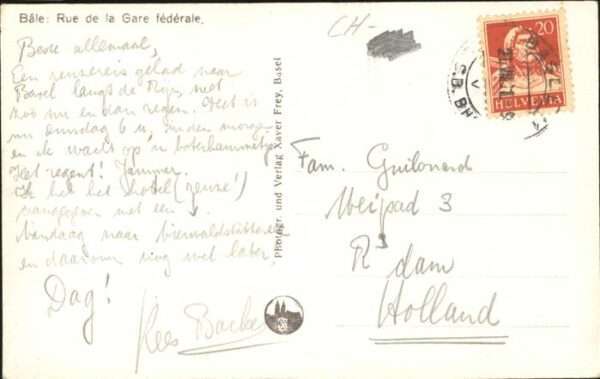 Bâle: Rue de la Gare fédérale.
CH-
Beste allemaal,
Een reuzereis gehad naar
Basel langs de Rijn, met
zoo nu en dan regen. Het is
nu dinsdag 6 u, in den morgen
en ik wacht op 'n boterhammetje
Het regent! Jammer.
Ik heb het hotel (reuze!)
aangegeven met een ↓.
Vandaag naar Vierwaldstätter
en daarom nog wel later.
Dag!
Kees
Photogr. und Verlag Xaver Frey, Basel
20
HELVETIA
Fam.
Weipad 3
R'dam
Holland